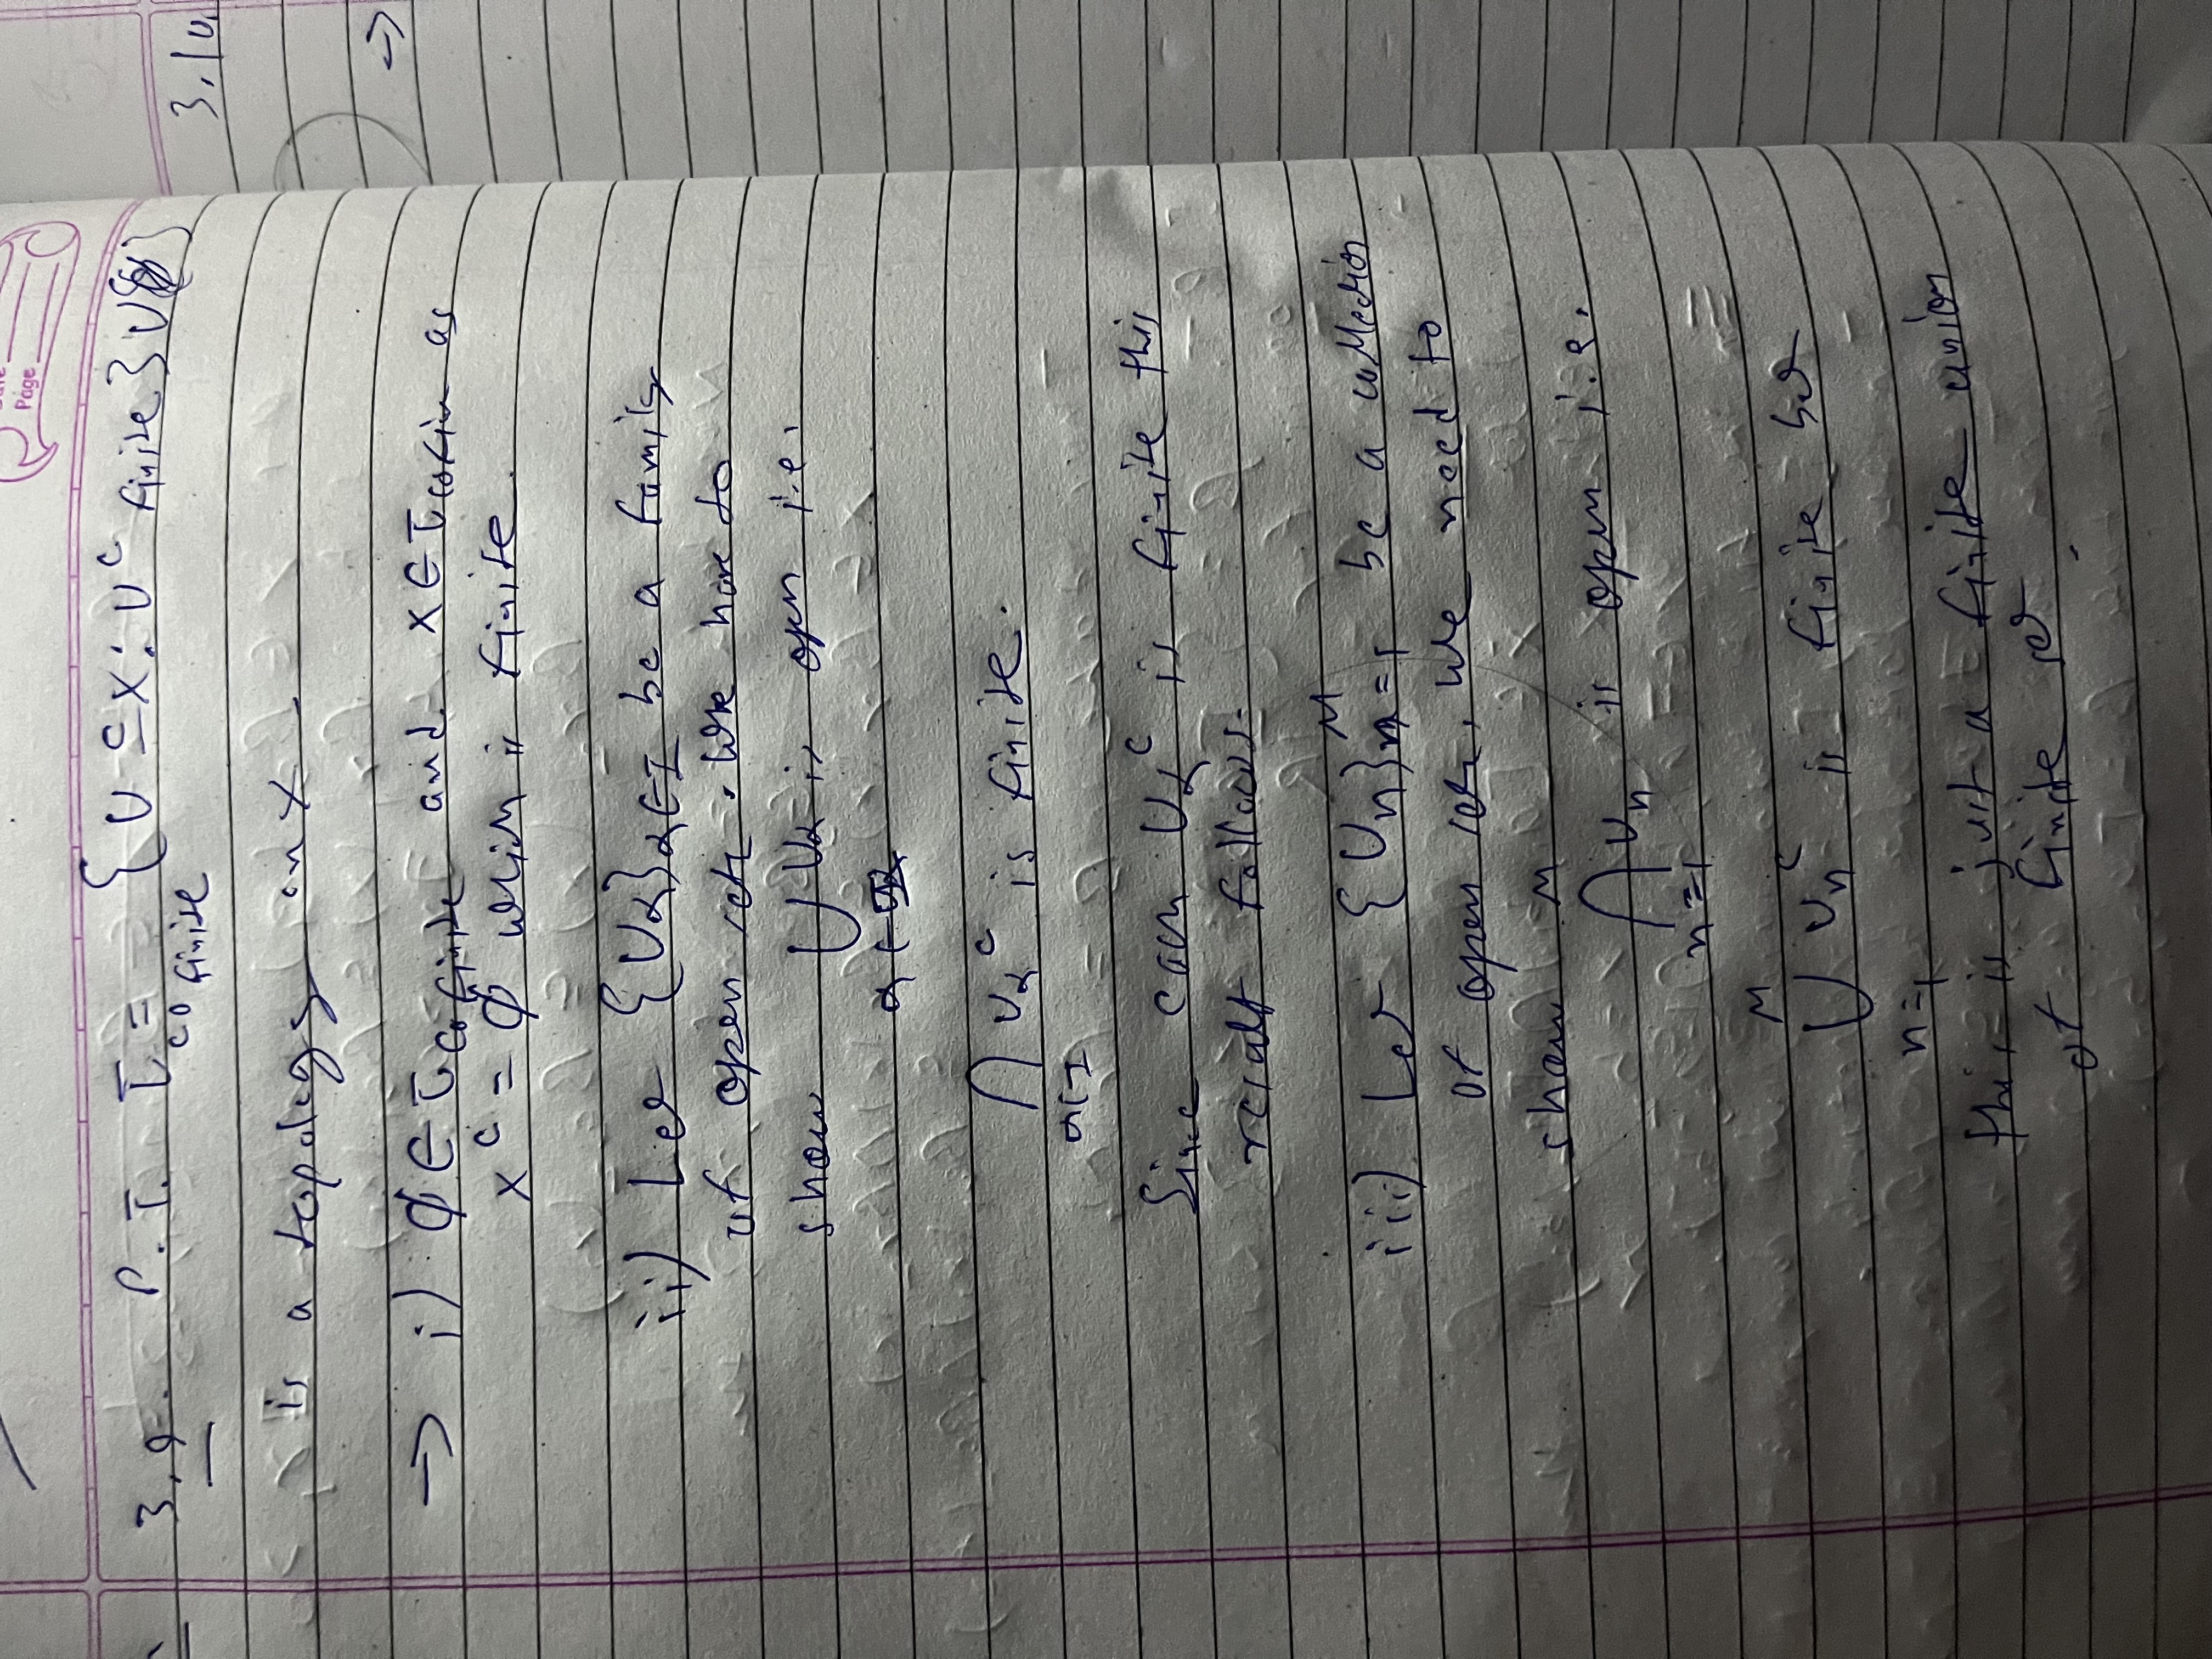 Page
3.9. P.T. τ_cofinite = {U ⊆ X : U^c finite} ∪ {φ}
is a topology on X
3.10.
→ i) φ ∈ τ_cofinite and X ∈ τ_cofin as
X^c = φ which is finite.
→
ii) Let {U_α}_α∈I be a family
of open sets. We have to
show ⋃ U_α is open i.e.
α ∈
⋂ U_α^c is finite.
α∈I
Since each U_α^c is finite this
result follows.
iii) Let {U_n}_n=1^M be a collection
of open sets. We need to
show M
⋂ U_n is open i.e.
n=1
M
⋃ U_n^c is finite but
n=1
this is just a finite union
of finite set.